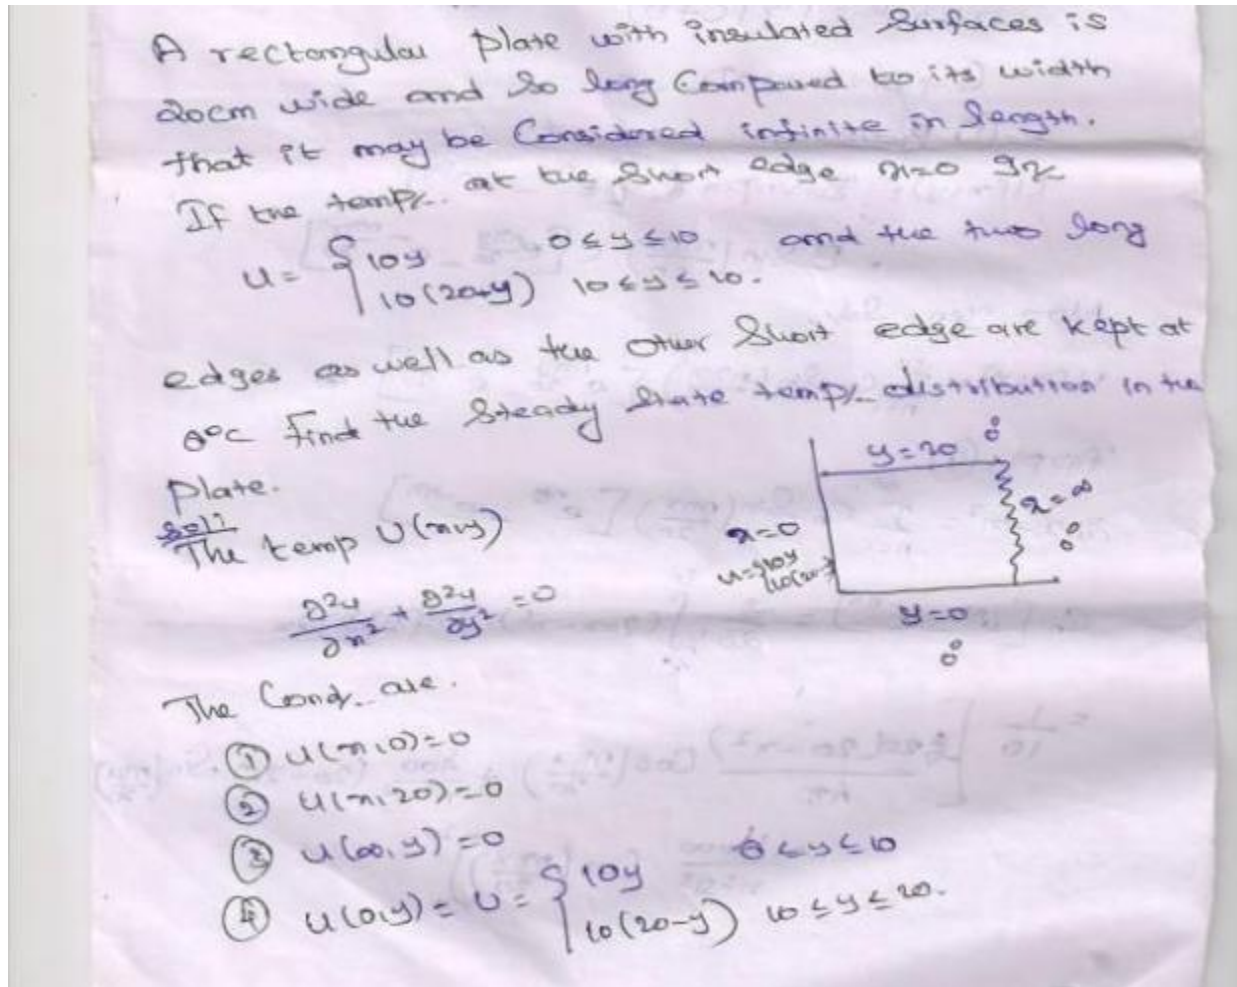 A rectangular plate with insulated surfaces is
20cm wide and so long Compared to its width
that it may be Considered infinite in length.
If the temp/. at the short edge x=0 is
u = { 10y 0 ≤ y ≤ 10 and the two long
10(20-y) 10 ≤ y ≤ 10.
edges as well as the other Short edge are kept at
0°C Find the Steady State temp/. distribution in the
plate.
Sol:
The temp U(x,y)
∂²u/∂x² + ∂²u/∂y² = 0
y=20 0°
x=0
u={10y
10(20-y
x=∞
0°
y=0
0°
The Cond. are.
① u(x,0)=0
② u(x,20)=0
③ u(∞,y)=0
④ u(0,y) = u = { 10y 0 ≤ y ≤ 10
10(20-y) 10 ≤ y ≤ 20.